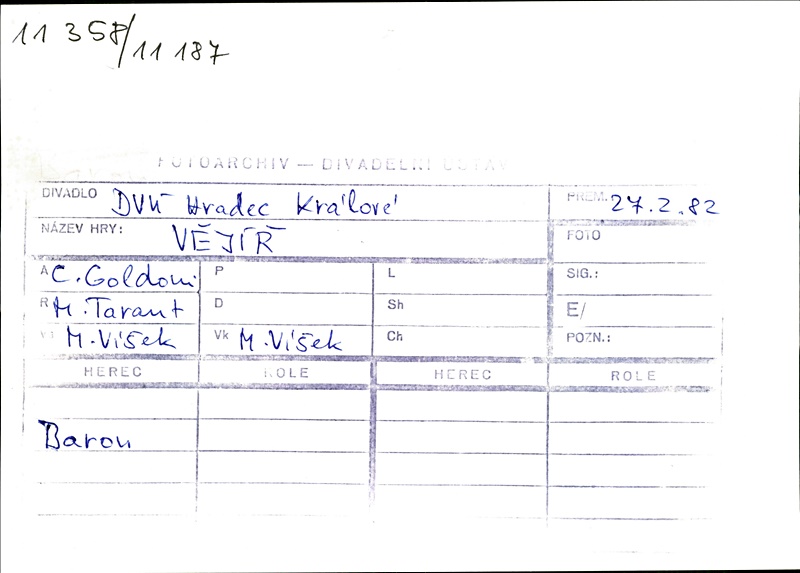 11 358/11 187
FOTOARCHIV — DIVADELNÍ ÚSTAV
DIVADLO DVÚ Hradec Králové PREM. 27.2.82
NÁZEV HRY: VĚJÍŘ FOTO
A C. Goldoni P L SIG.:
R M. Tarant D Sh E/
M. Víšek Vk M. Víšek Ch POZN.:
HEREC ROLE HEREC ROLE
Baron